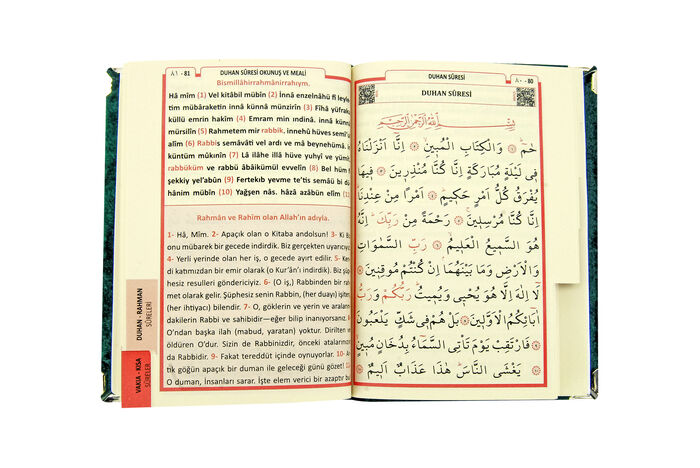 ٨١ - 81
DUHAN SÛRESİ OKUNUŞ VE MEALİ
Bismillâhirrahmânirrahıym.
Hâ mîm (1) Vel kitâbil mübîn (2) İnnâ enzelnâhü fî leyle
tim mübâraketin innâ künnâ münzirîn (3) Fîhâ yüfrak
küllü emrin hakîm (4) Emram min ındinâ, innâ künnâ
mürsilîn (5) Rahmetem mir rabbik, innehû hüves semî'ul
alîm (6) Rabbis semâvâti vel ardı ve mâ beynehümâ, in
küntüm mûkınîn (7) Lâ ilâhe illâ hüve yuhyî ve yümît,
rabbüküm ve rabbü âbâikümül evvelîn (8) Bel hüm fî
şekkiy yel'abûn (9) Fertekıb yevme te'tis semâü bi dü
hânim mübîn (10) Yağşen nâs. hâzâ azâbün elîm
Rahmân ve Rahîm olan Allah'ın adıyla.
1- Hâ, Mîm. 2- Apaçık olan o Kitaba andolsun! 3- Ki Biz
onu mübarek bir gecede indirdik. Biz gerçekten uyarıcıyız.
4- Yerli yerinde olan her iş, o gecede ayırt edilir. 5-
di katımızdan bir emir olarak (o Kur'ân'ı indirdik). Biz şüp-
hesiz resulleri göndericiyiz. 6- (O iş,) Rabbinden bir rah-
met olarak gelir. Şüphesiz senin Rabbin, (her duayı) işiten,
(her ihtiyacı) bilendir. 7- O, göklerin yerin ve aralarında
dakilerin Rabbi ve sahibidir—eğer bilip inanıyorsanız.
O'ndan başka ilah (mabud, yaratan) yoktur. Dirilten
öldüren O'dur. Sizin de Rabbinizdir, önceki atalarınızın
da Rabbidir. 9- Fakat tereddüt içinde oynuyorlar. 10-
tik göğün apaçık bir duman ile geleceği günü gözet!
O duman, İnsanları sarar. İşte elem verici bir azaptır bu
DUHAN - RAHMAN
SÛRELERİ
VAKIA - KISA
SÛRELER
DUHAN SÛRESİ
٨٠ - 80
DUHAN SÛRESİ
بِسْمِ اللّٰهِ الرَّحْمٰنِ الرَّحِيمِ
حٰمٓ ۞ وَالْكِتَابِ الْمُبِينِ ۞ اِنَّٓا اَنْزَلْنَاهُ
فِى لَيْلَةٍ مُبَارَكَةٍ اِنَّا كُنَّا مُنْذِرِينَ ۞ فِيهَا
يُفْرَقُ كُلُّ اَمْرٍ حَكِيمٍ ۞ اَمْرًا مِنْ عِنْدِنَا
اِنَّا كُنَّا مُرْسِلِينَ ۞ رَحْمَةً مِنْ رَبِّكَ اِنَّهُ
هُوَ السَّمِيعُ الْعَلِيمُ ۞ رَبِّ السَّمٰوَاتِ
وَالْاَرْضِ وَمَا بَيْنَهُمَا اِنْ كُنْتُمْ مُوقِنِينَ ۞
لَٓا اِلٰهَ اِلَّا هُوَ يُحْيِى وَيُمِيتُ رَبُّكُمْ وَرَبُّ
اٰبَٓائِكُمُ الْاَوَّلِينَ ۞ بَلْ هُمْ فِى شَكٍّ يَلْعَبُونَ
فَارْتَقِبْ يَوْمَ تَأْتِى السَّمَٓاءُ بِدُخَانٍ مُبِينٍ
۞ يَغْشَى النَّاسَ هٰذَا عَذَابٌ اَلِيمٌ ۞